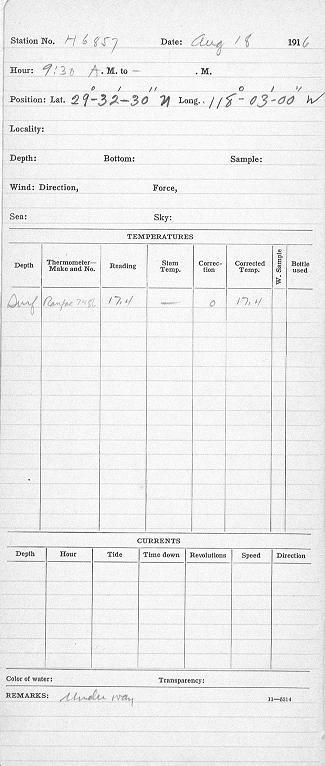 Station No. H6857 Date: Aug 18 1916
Hour: 9:30 A. M. to - . M.
Position: Lat. 29°-32'-30" N Long. 118°-03'-00" W
Locality:
Depth: Bottom: Sample:
Wind: Direction, Force,
Sea: Sky:
TEMPERATURES
Depth Thermometer—Make and No. Reading Stem Temp. Correction Corrected Temp. W. Sample Bottle used
Surf 17.4 — 0 17.4
CURRENTS
Depth Hour Tide Time down Revolutions Speed Direction
Color of water: Transparency:
REMARKS: Under way 11—5514